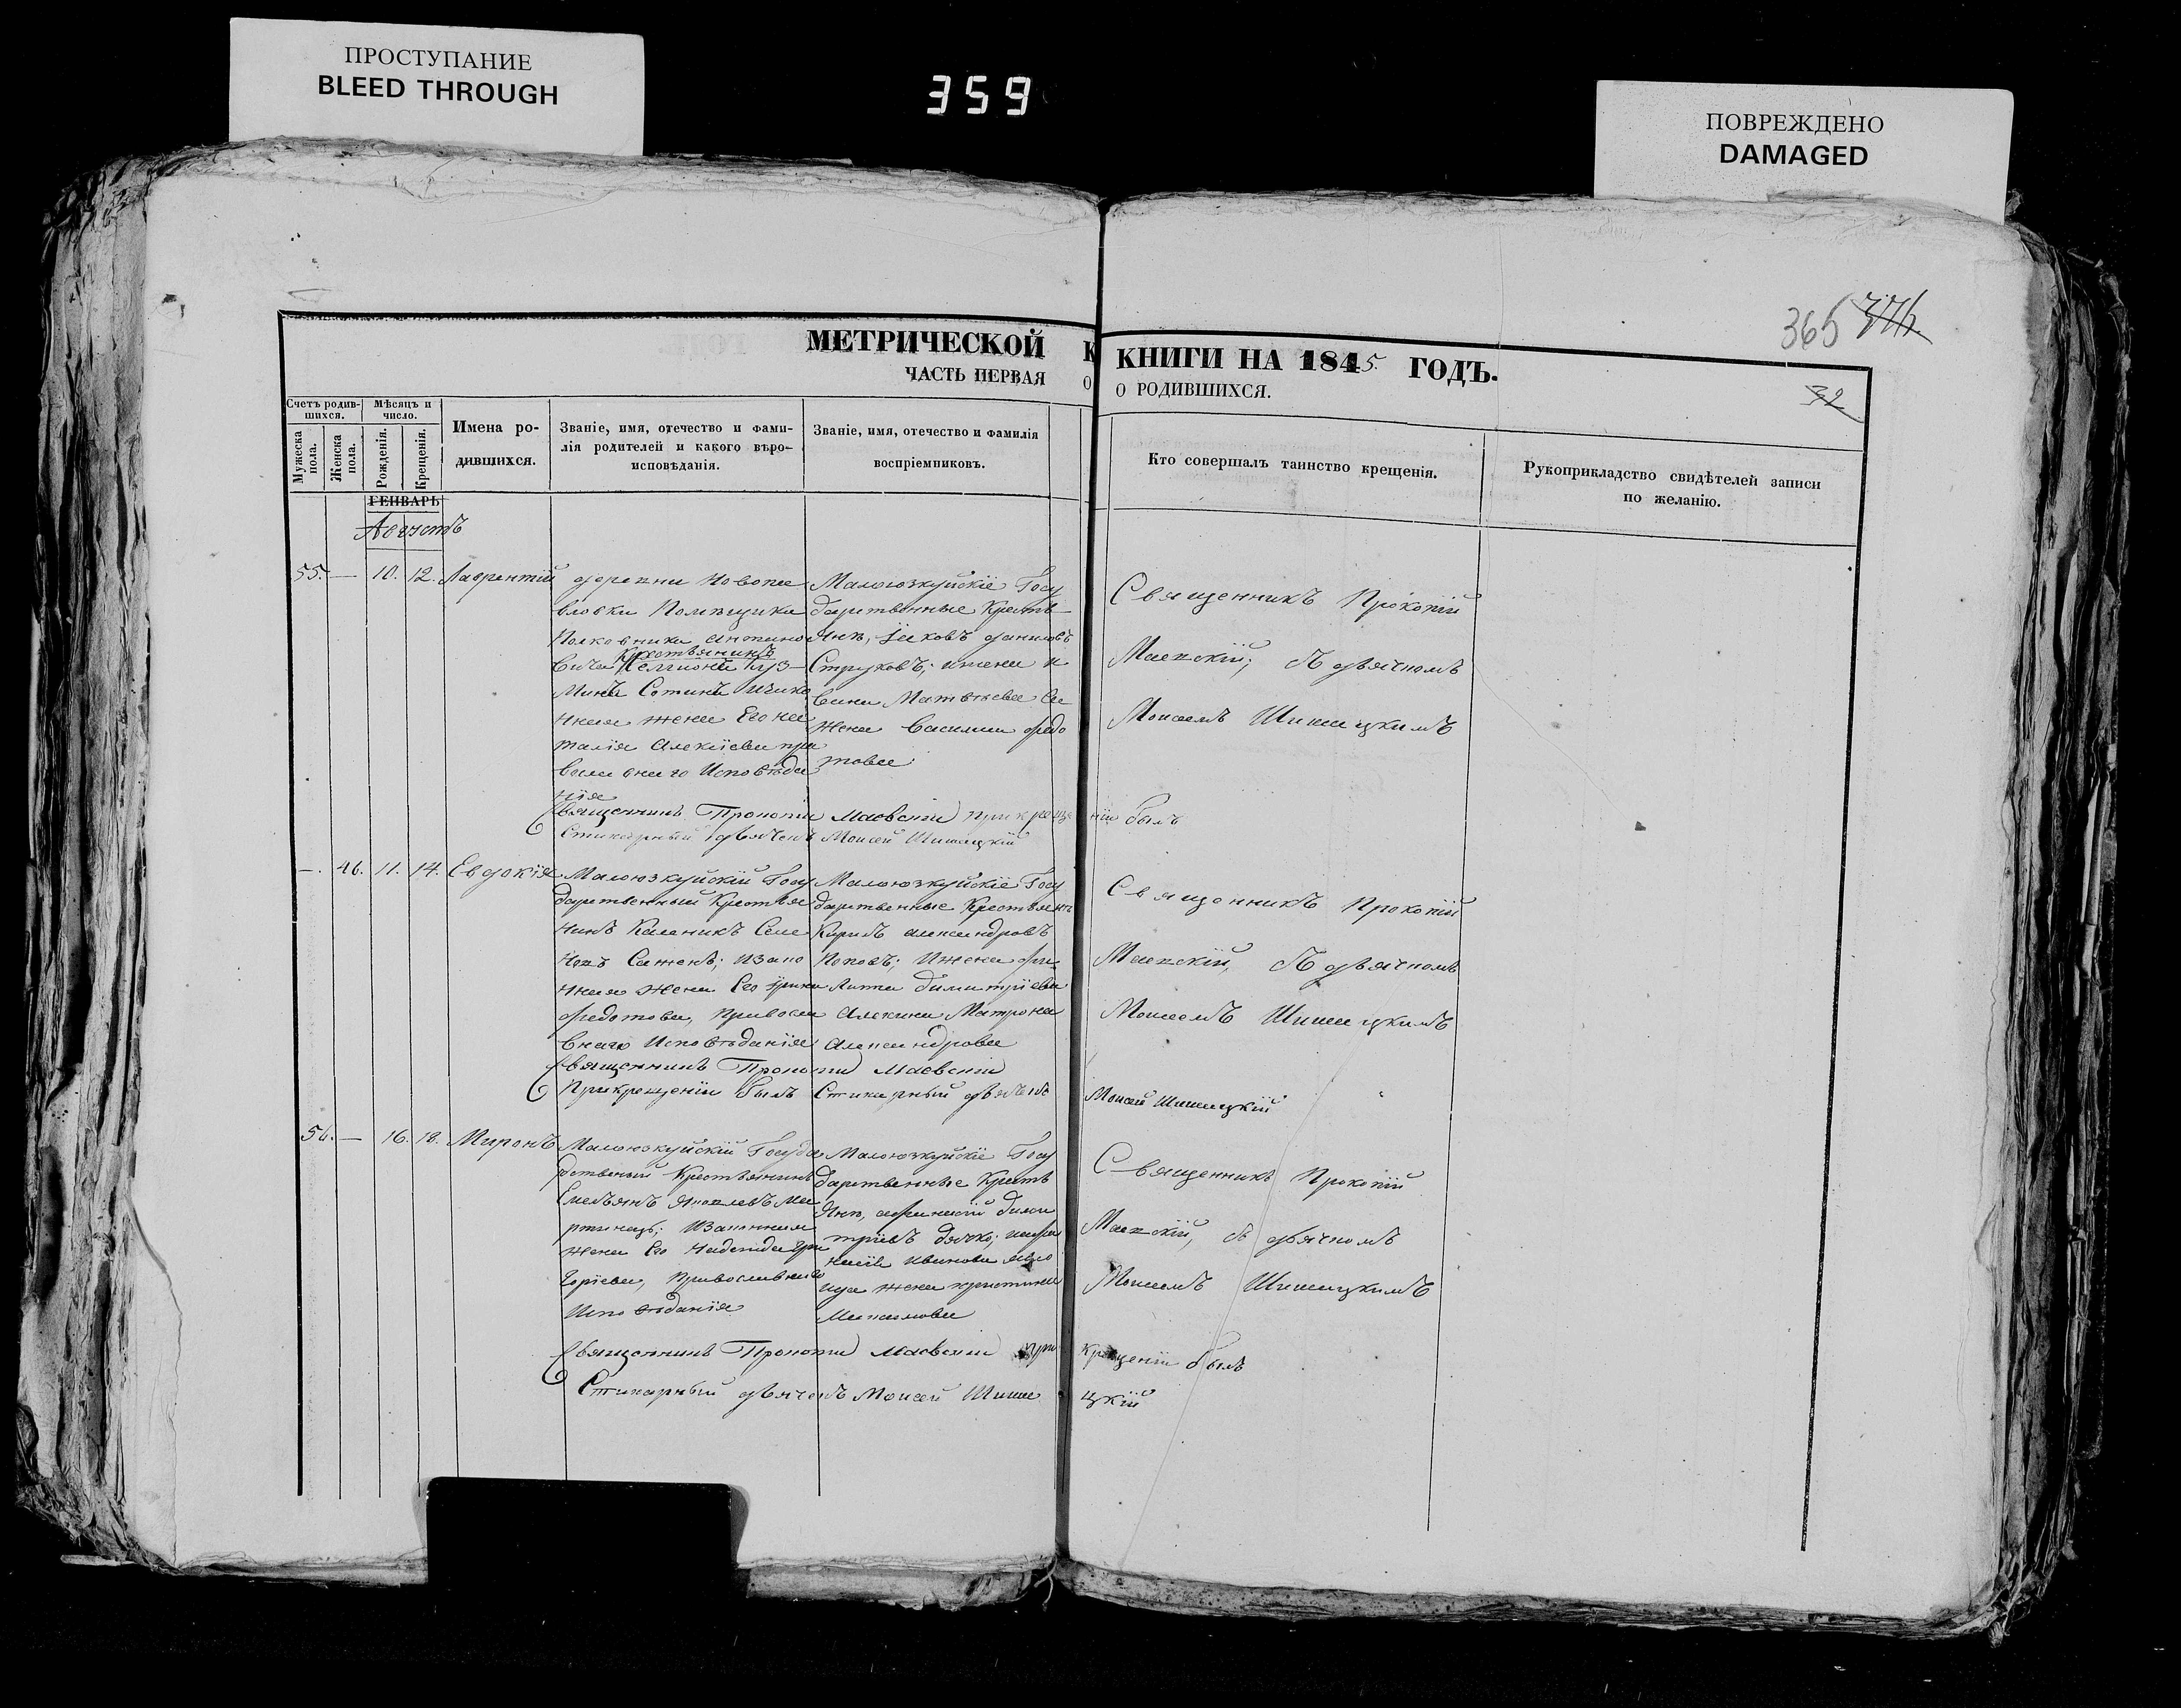 ПРОСТУПАНИЕ
BLEED THROUGH
359
ПОВРЕЖДЕНО
DAMAGED
365
32
МЕТРИЧЕСКОЙ КНИГИ НА 1845. ГОДЪ.
ЧАСТЬ ПЕРВАЯ О РОДИВШИХСЯ.
Счетъ родив-
шихся.
Мѣсяцъ и
число.
Мужеска
пола.
Женска
пола.
Рожденія.
Крещенія.
Имена ро-
дившихся.
Званіе, имя, отечество и фами-
лія родителей и какого вѣро-
исповѣданія.
Званіе, имя, отечество и фамилія
воспріемниковъ.
Кто совершалъ таинство крещенія.
Рукоприкладство свидѣтелей записи
по желанію.
ГЕНВАРЬ
Августъ
55. — 10. 12. Лаврентій
деревни Новопа
вловки Помѣщика
Полковника
Крестьянинъ
жена Его На
талія Алексіева пра
вославнаго Исповѣда
нія
Малоюзкуйскіе Госу
дарственные Крестья
Яковъ Даниловъ
Струковъ;
Матвѣева
жена Василиса Федо
това
Священникъ Прокопій
Маевскій; съ дьячкомъ
Моисеемъ Шишацкимъ
Священникъ Прокопій Маевскій при крещеніи былъ
Стихарный дьячекъ Моисей Шишацкій
—. 46. 11. 14. Евдокія
Малоюзкуйскій Госу
дарственный Крестья
нинъ Каленикъ Семе
новъ Саженъ; изако
нная жена Его Ирина
Федотова, Правосла
внаго Исповѣданія
Малоюзкуйскіе Госу
дарственные Крестьяне
Кирилъ Александровъ
Поповъ; Ижена
Димитріева
Матрона
Александрова
Священникъ Прокопій
Маевскій, съ дьячкомъ
Моисеемъ Шишацкимъ
Священникъ Прокопій Маевскій
При крещеніи былъ Стихарный дьячекъ Моисей Шишацкій
56. — 16. 18. Миронъ
Малоюзкуйскій Госуда
рственый Крестьянинъ
Емельянъ Яковлевъ Ма
ртинецъ; Изаконная
жена Его Надежда Гри
горіева, Православнаго
Исповѣданія
Малоюзкуйскіе Госу
дарственные Крестья
Дими
тріевъ Дячко;
Иванова
жена Христина
Максимова
Священникъ Прокопій
Маевскій, съ дьячкомъ
Моисеемъ Шишацкимъ
Священникъ Прокопій Маевскій при крещеніи былъ
Стихарный дьячекъ Моисей Шишацкій